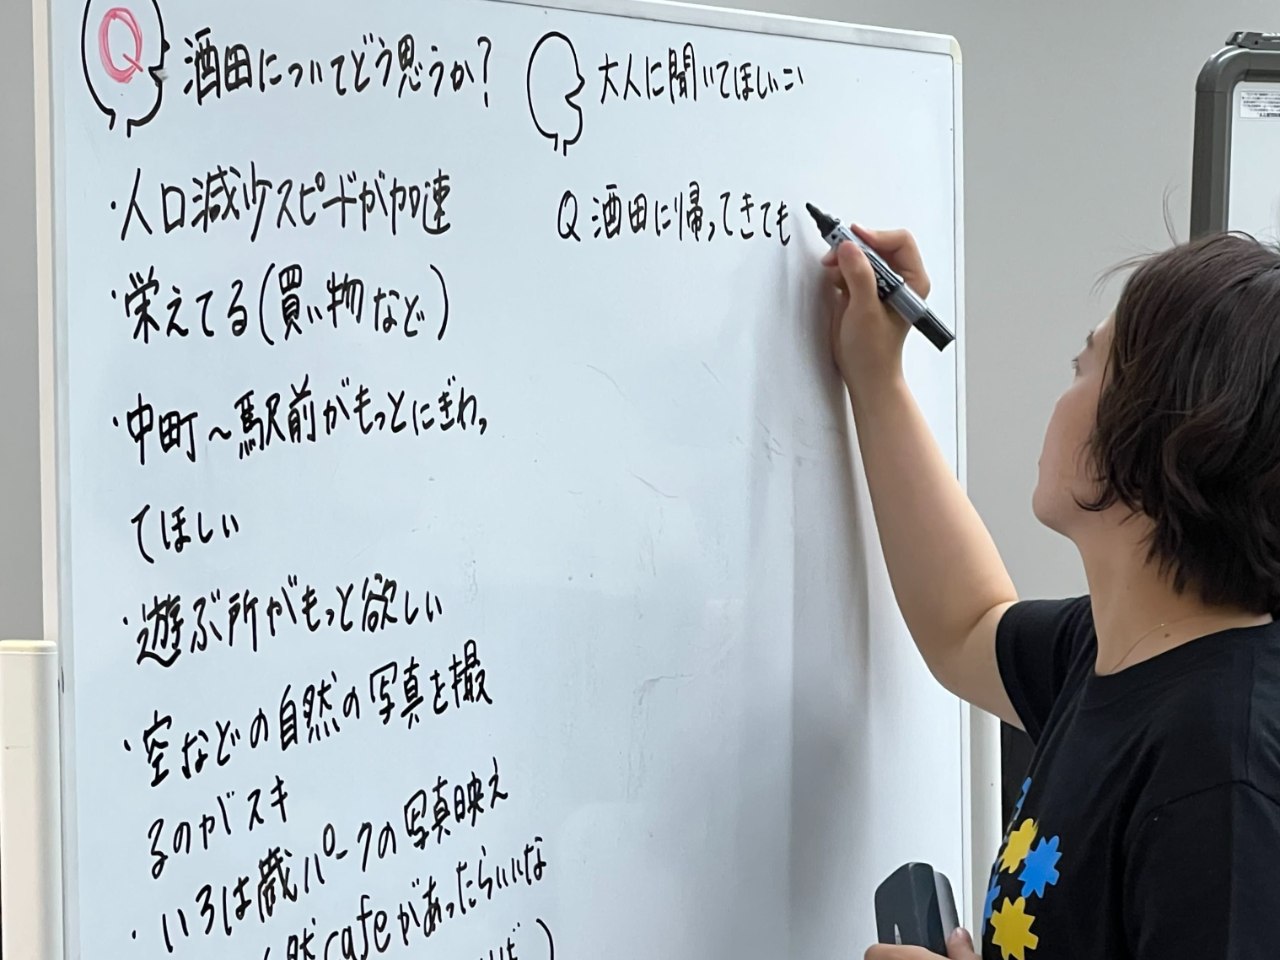 Q 酒田についてどう思うか?
・人口減少スピードが加速
・栄えてる(買い物など)
・中町～駅前がもっとにぎわっ
てほしい
・遊ぶ所がもっと欲しい
・空などの自然の写真を撮
るのがスキ
・いろは蔵パークの写真映え
然cafeがあったらいいな
大人に聞いてほしいこ
Q 酒田に帰ってきても